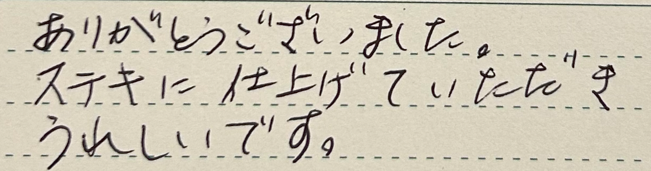 ありがとうございました。
ステキに仕上げていただき
うれしいです。